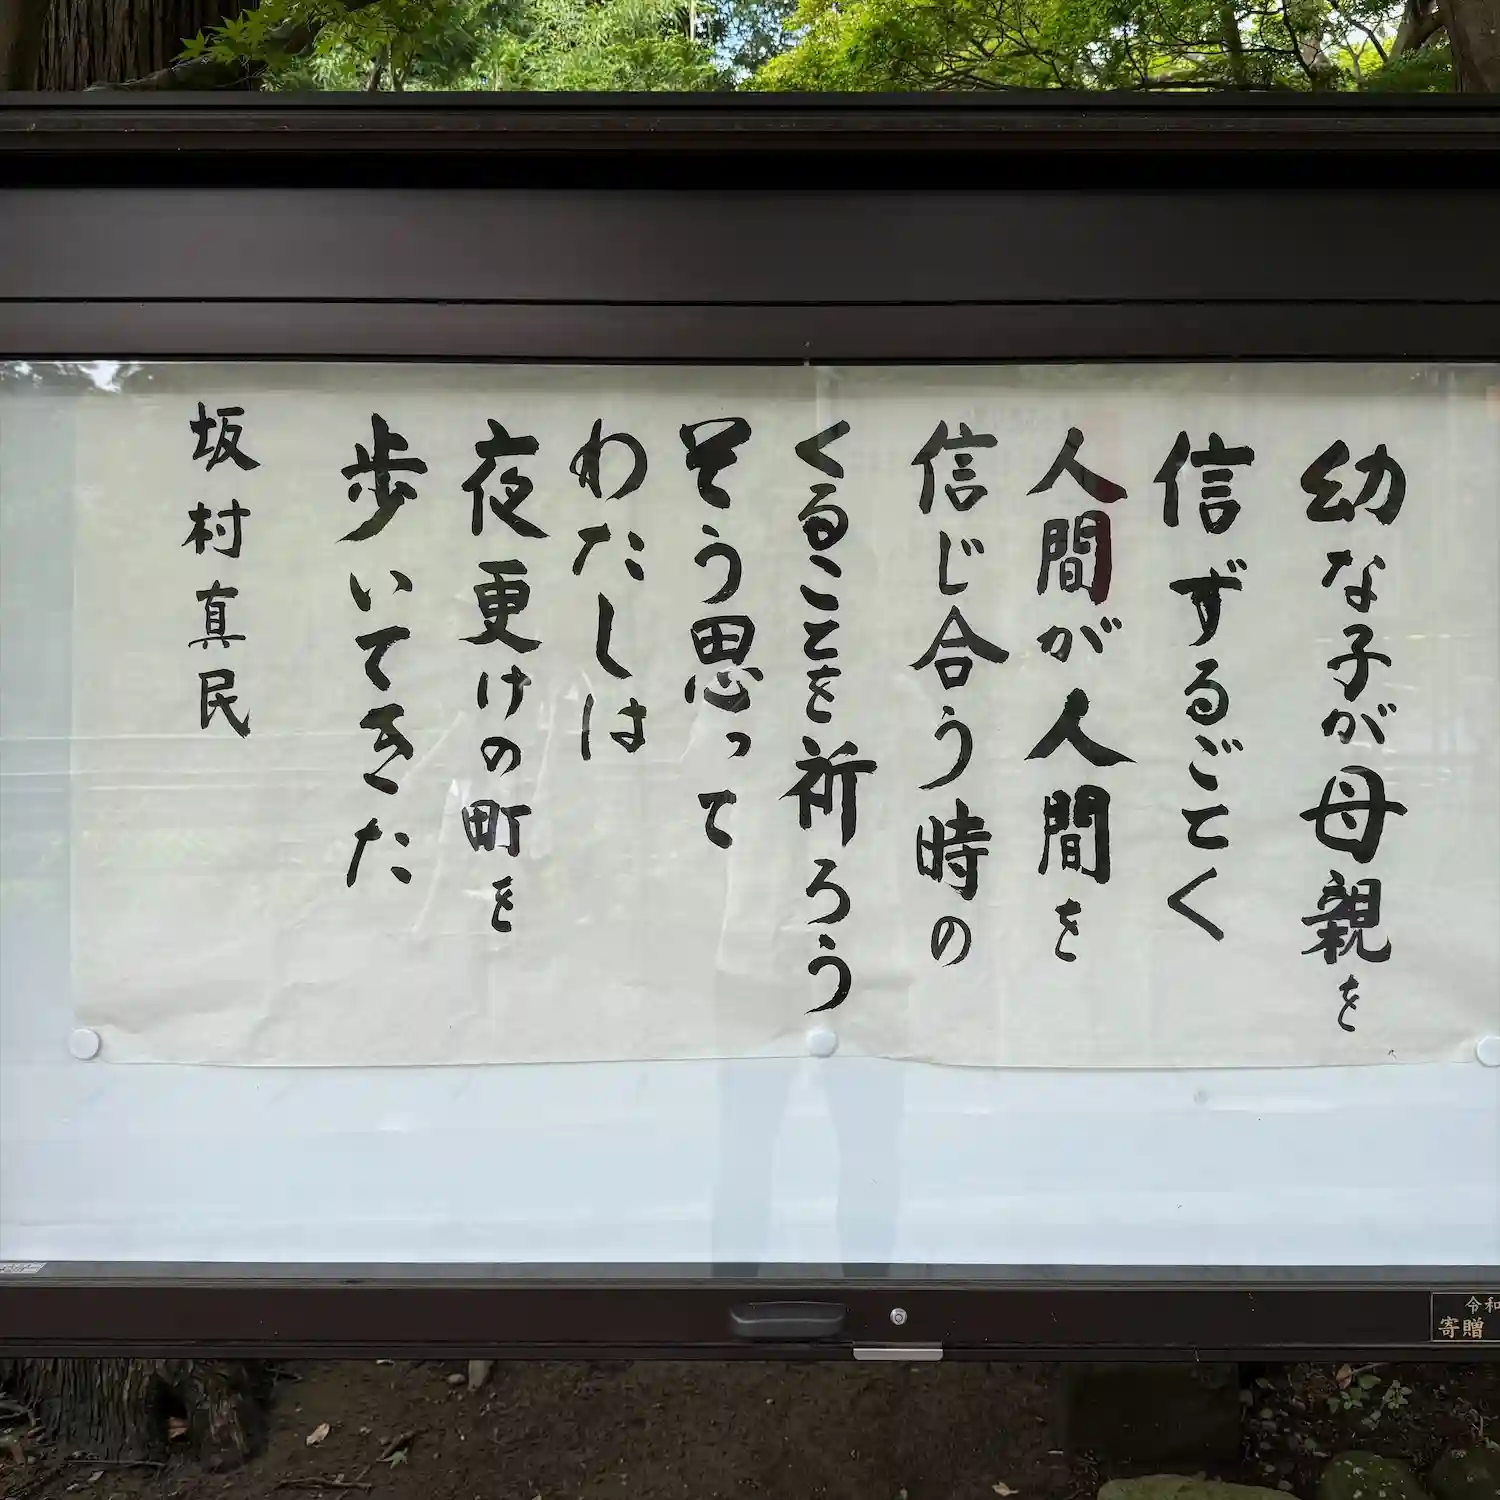 幼な子が母親を
信ずるごとく
人間が人間を
信じ合う時の
くることを祈ろう
そう思って
わたしは
夜更けの町を
歩いてきた
坂村真民
令和
寄贈